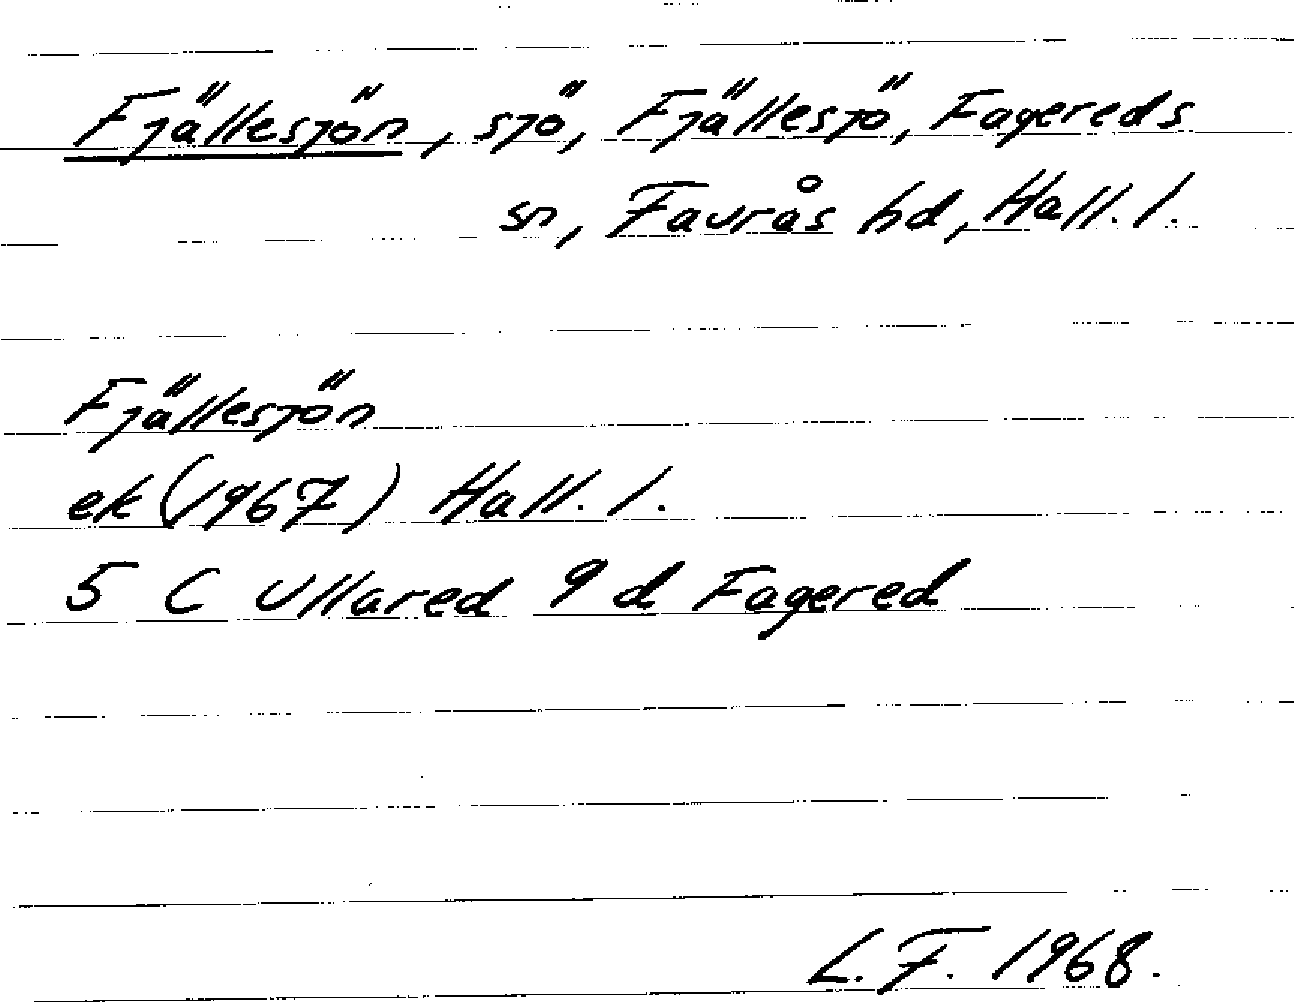 Fjällesjön, sjö, Fjällesjö, Fagereds
sn, Faurås hd, Hall. l.
Fjällesjön
ek (1967) Hall. l.
5 C Ullared 9 d Fagered
L. F. 1968.